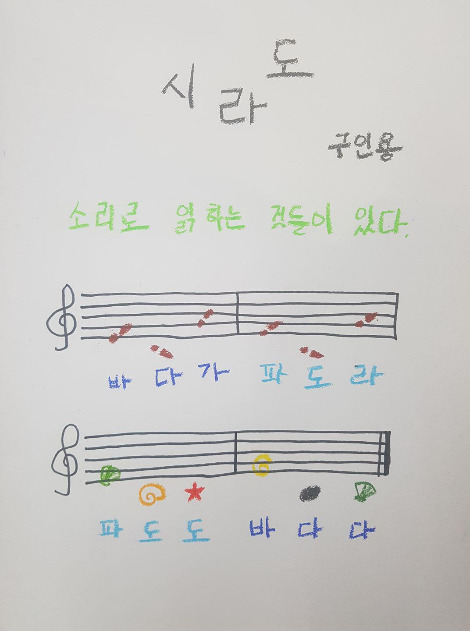 시 라 도
구인용
소리로 것들이 있다.
바 다 가 파 도 라
파 도 도 바 다 다